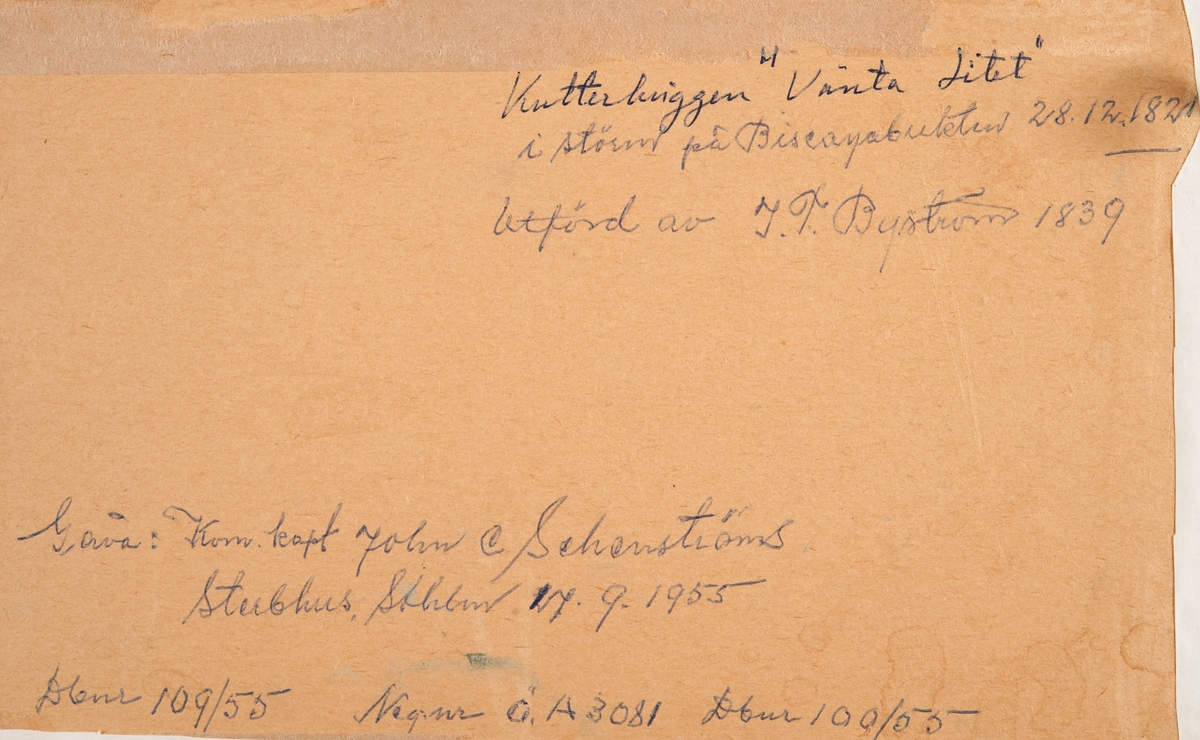 Kutterbriggen "Vänta Litet"
i storm på Biscayabukten 28.12.1821
Utförd av J.T. Byström 1839
Gåva: Kom. kapt John C Schenströms
Sterbhus, Sthlm 27. 9. 1955
Dbnr 109/55 Neg nr Ö. A 3081 Dbnr 109/55